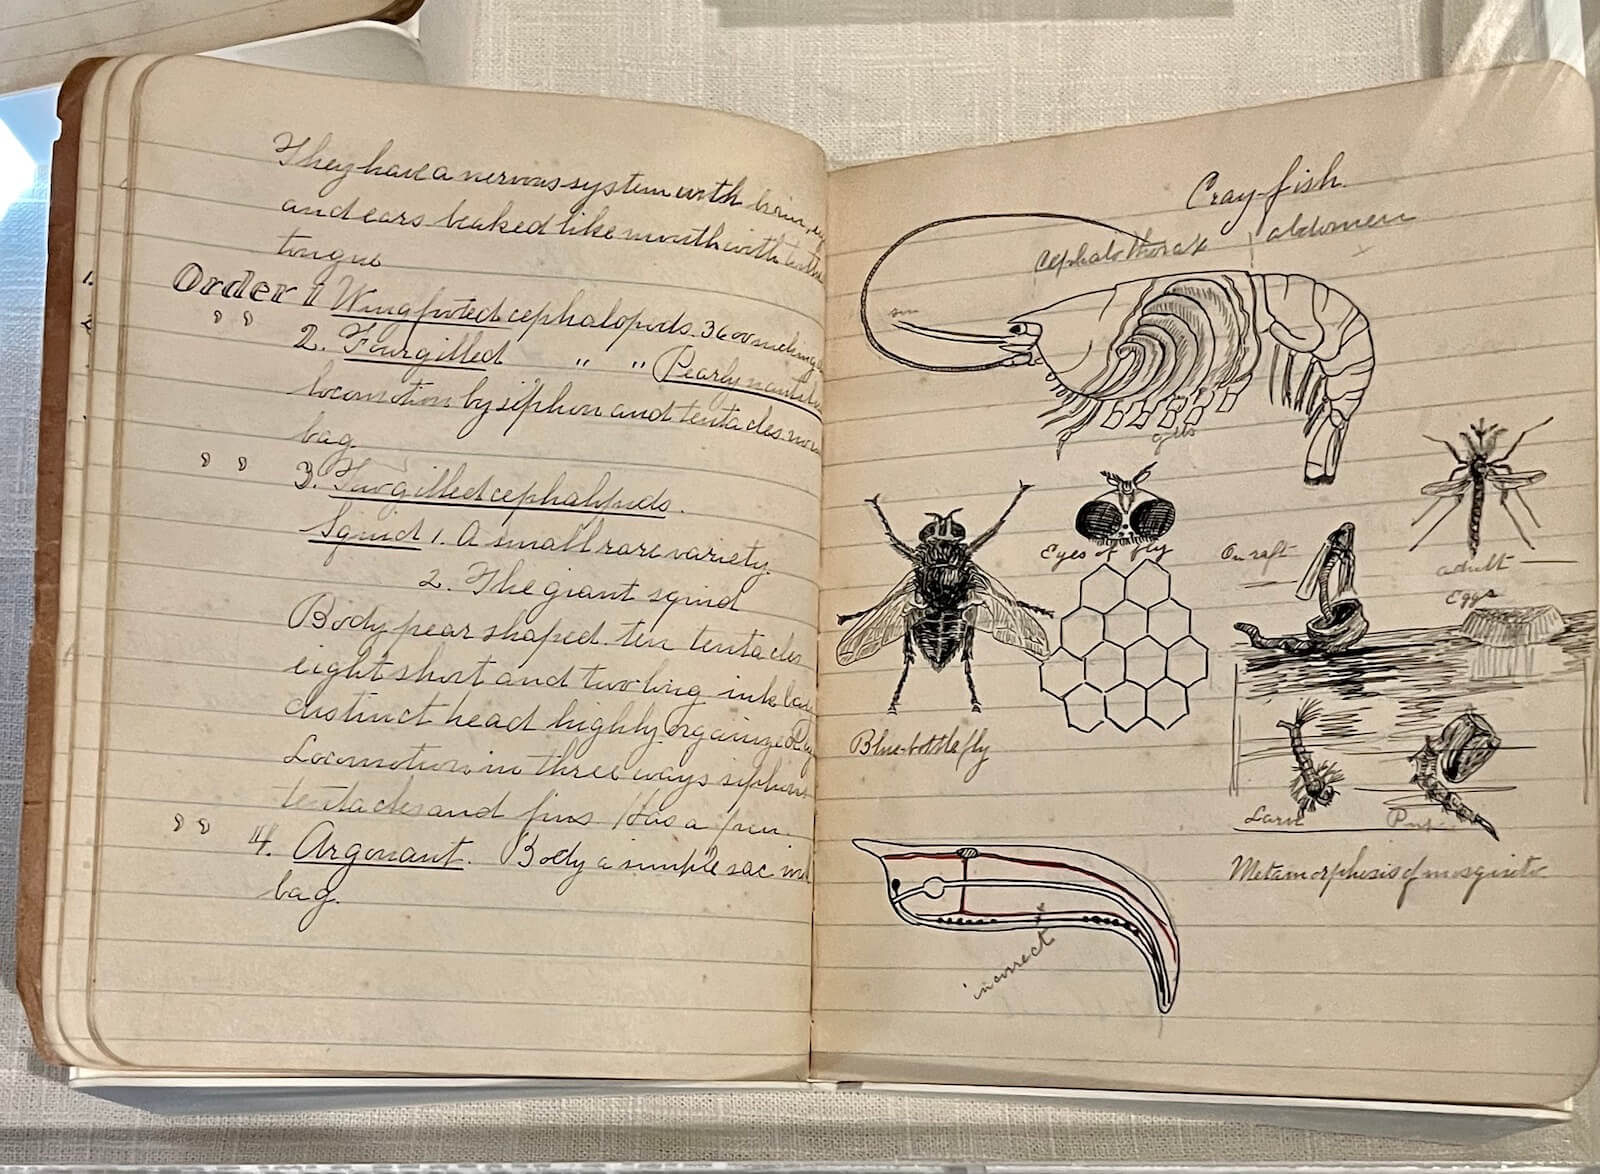 They have a nervous system with brain,
and ears beaked like mouth with
tongue
Order 1 Wing footed cephalopods.
" " 2. Four gilled " " Pearly
locomotion by siphon and tentacles no
bag
" " 3. Two gilled cephalopods.
Squid 1. A small rare variety.
2. The giant squid
Body pear shaped ten tentacles
eight short and two long ink bag
distinct head highly organized
Locomotion in three ways siphon
tentacles and fins Has a pen.
" " 4. Argonaut. Body a simple sac
bag.
1.
Cray-fish.
Cephalothorax
abdomen
Eyes of fly
On raft
adult
Eggs
Blue-bottle fly
Larv
Metamorphosis of mosquito
incorrect
x